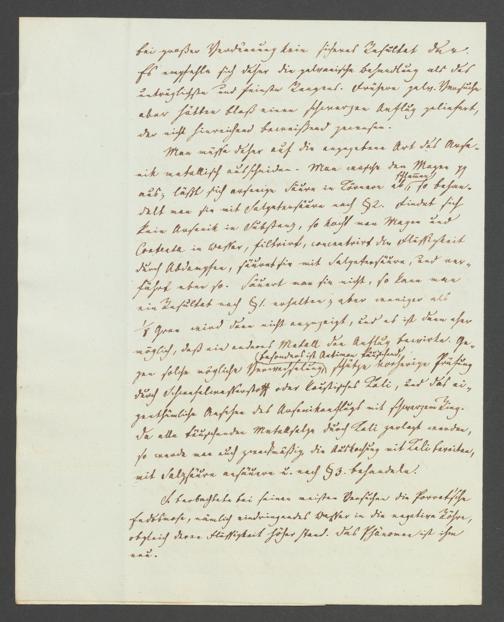 bei großer Verdünnung kein sicheres Resultat
Es empfehle sich daher die galvanische Behandlung als das
untrüglichste und feinste Reagens. Frühere galv. Versuche
aber hätten bloß einen schwarzen Anflug geliefert,
der nicht hinreichend beweisend gewesen.
Man müsse daher auf die angegebene Art das Arse-
nik metallisch ausscheiden. Man wasche den Magen
aus, läßt sich arsenige Säure in Körnern so behan-
delt man sie mit Salpetersäure nach §2. Findet sich
kein Arsenik in Substanz, so kocht man Magen und
Contenta in Wasser, filtrirt, concentrirt die Flüssigkeit
durch Abdampfen, säuert sie mit Salpetersäure, und ver-
fährt eben so. Säuert man sie nicht, so kann man
ein Resultat nach §1. erhalten; aber weniger als
1/8 Gran wird dann nicht angezeigt, und es ist dann eher
möglich, daß ein anderes Metall den Anflug bewirke. Ge-
gen solche mögliche Verwechselung (besonders ist Antimon täuschend) schütze vorherige Prüfung
durch Schwefelwasserstoff oder kaustisches Kali, und das ei-
genthümliche Ansehen des Arsenikanflugs mit schwarzem Ring.
Da alle täuschenden Metallsalze durch Kali zerlegt werden,
so werde man auch zweckmäßig die Auskochung mit Kali bereiten,
mit Salzsäure ansäuern u. nach §3. behandeln.
F. beobachtete bei seinen meisten Versuchen die Porretsche
Endosmose, nämlich eindringendes Wasser in die negative Röhre,
obgleich deren Flüssigkeit höher stand. Das Phänomen ist ihm
neu.